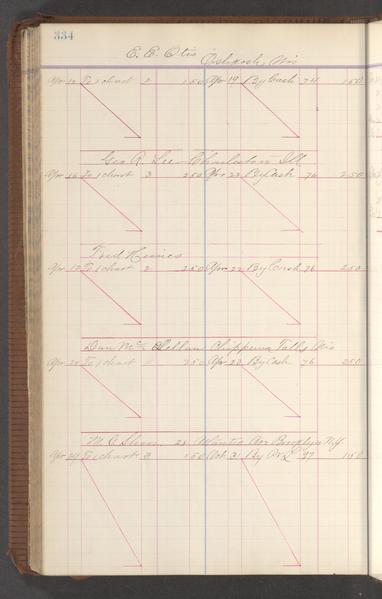 334
E. E. Otis Oshkosh, Wis
Apr 12 To 1 chart 2 1 50 Apr 19 By Cash 74 1 50
Geo R. Lee Charleston Ill
Apr 16 To 1 chart 3 2 50 Apr 23 By Cash 76 2 50
Fred
Apr 19 To 1 chart 2 2 50 Apr 22 By Cash 76 2 50
Dan Mc Lellan Chippewa Falls Wis
Apr 20 To 1 chart 2 50 Apr 23 By Cash 76 2 50
M. C. 28 Atlantic Ave Brooklyn N.Y.
Apr 29 To 1 chart 3 1 50 Oct 31 By 97 1 50